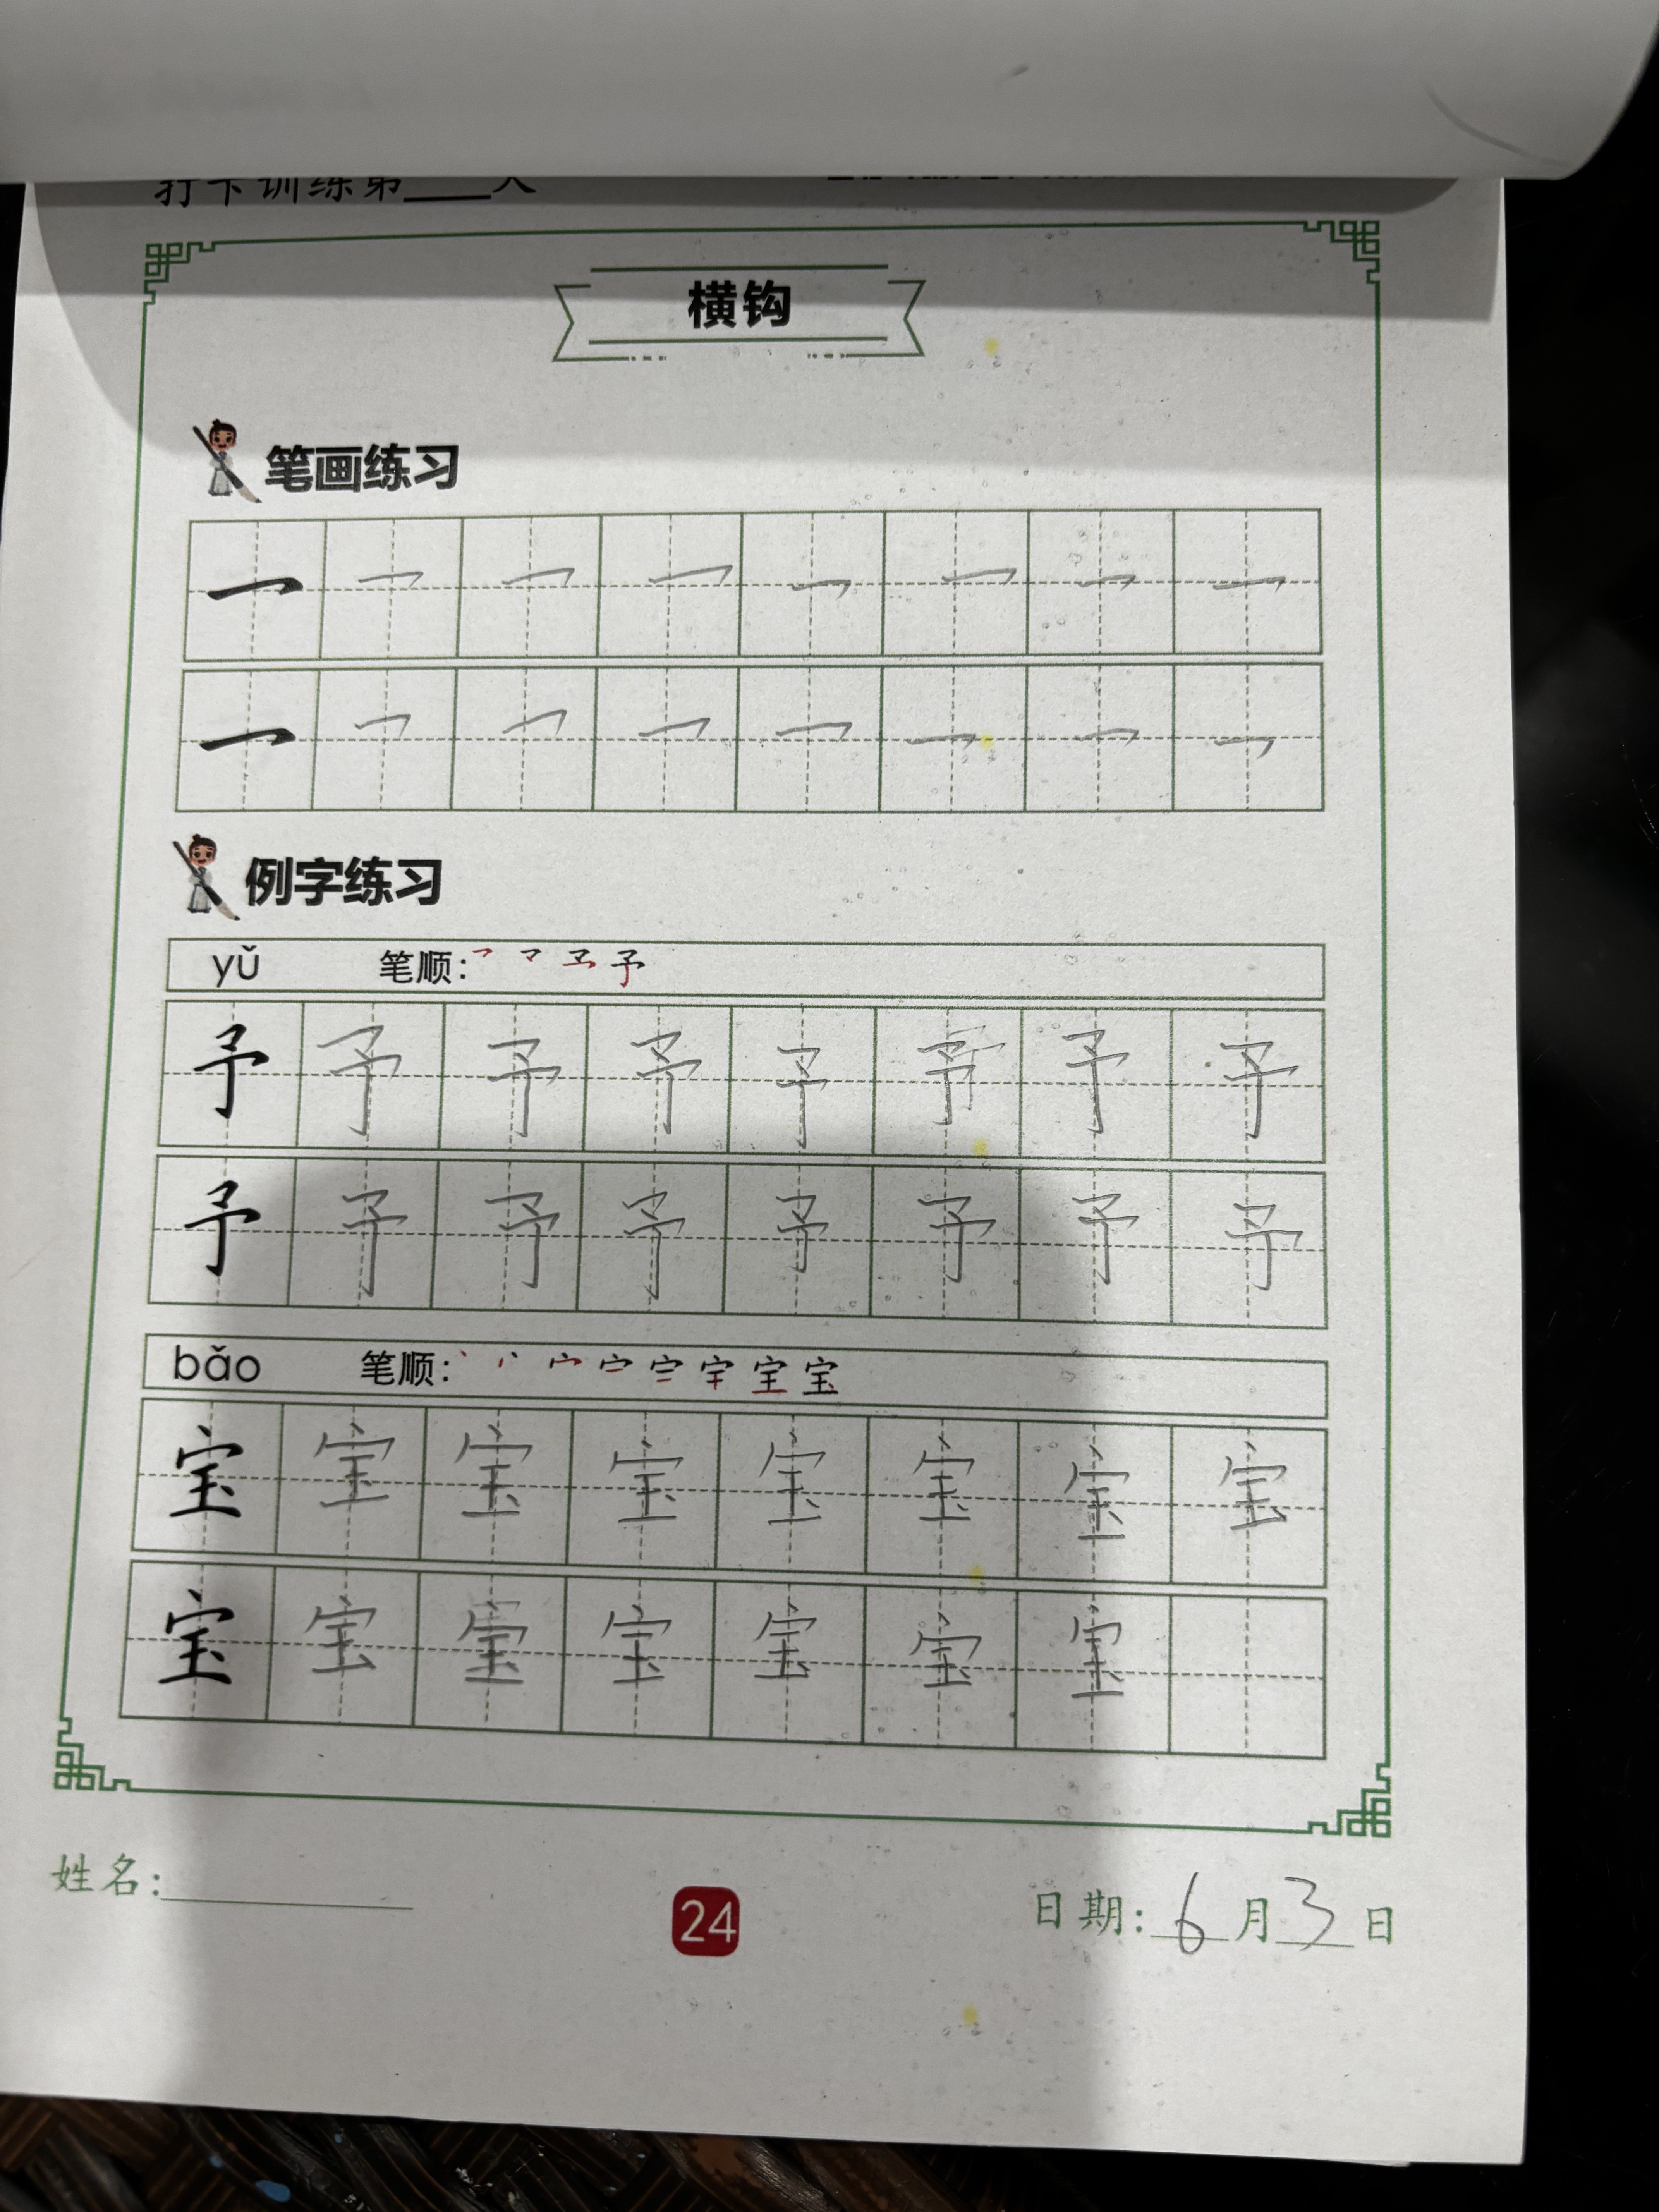 打卡训练第____天
横钩
笔画练习
㇖ ㇖ ㇖ ㇖ ㇖ ㇖ ㇖ ㇖
㇖ ㇖ ㇖ ㇖ ㇖ ㇖ ㇖ ㇖
例字练习
yǔ 笔顺:
予 予 予 予 予 予 予 予
予 予 予 予 予 予 予 予
bǎo 笔顺:
宝 宝 宝 宝 宝 宝 宝 宝
宝 宝 宝 宝 宝 宝 宝
姓名:
24
日期: 6 月 3 日